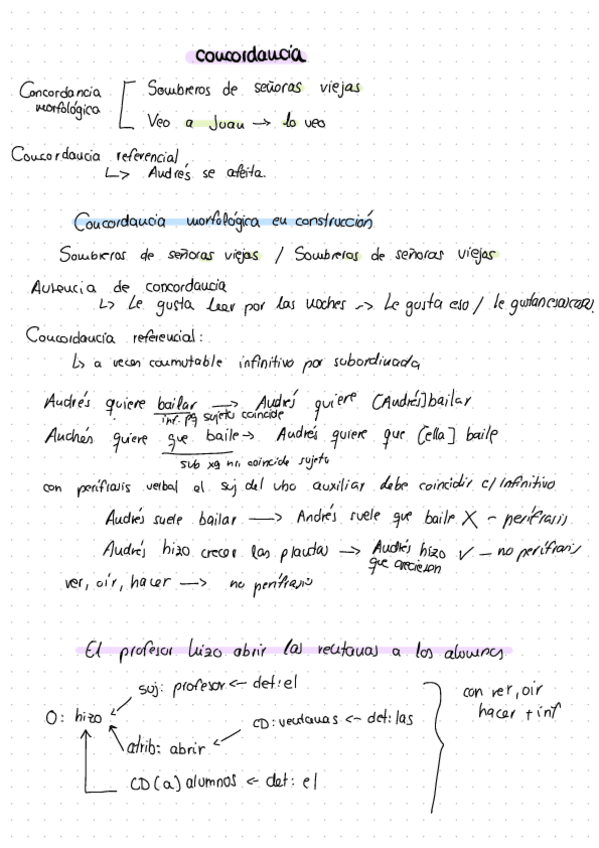 concordancia
Concordancia morfológica
Sombreros de señoras viejas
Veo a Juan → lo veo
Concordancia referencial
↳ Andrés se afeita.
Concordancia morfológica en construcción
Sombreros de señoras viejas / Sombreros de señoras viejas
Ausencia de concordancia
↳ Le gusta leer por las noches → Le gusta eso / le gustan
Concordancia referencial:
↳ a veces conmutable infinitivo por subordinada
Andrés quiere bailar → Andrés quiere [Andrés] bailar
inf. pq sujeto coincide
Andrés quiere que baile → Andrés quiere que [ella] baile
sub xq no coincide sujeto
con perífrasis verbal el suj del vbo auxiliar debe coincidir c/ infinitivo
Andrés suele bailar → Andrés suele que baile X - perífrasis
Andrés hizo crecer las plantas → Andrés hizo ✓ - no perífrasis
que crecieran
ver, oír, hacer → no perífrasis
El profesor hizo abrir las ventanas a los alumnos
suj: profesor ← det: el
O: hizo
CD: ventanas ← det: las
atrib: abrir
CD (a) alumnos ← det: el
con ver, oir
hacer + inf